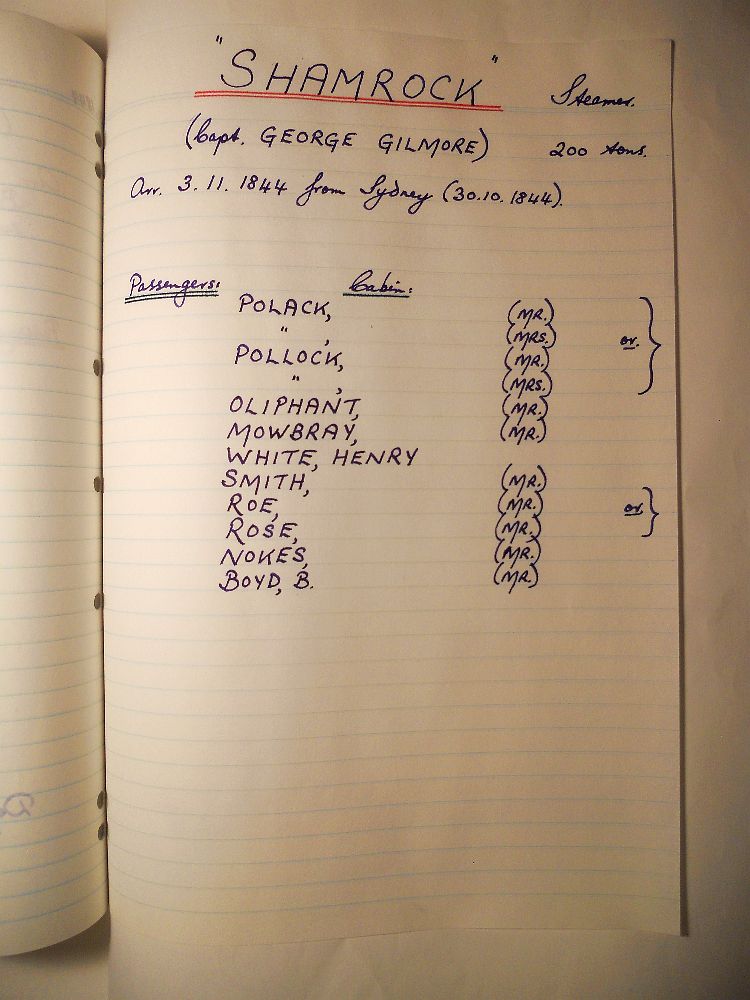 "SHAMROCK" Steamer.
(Capt. GEORGE GILMORE) 200 tons.
Arr. 3.11.1844 from Sydney (30.10.1844).
Passengers: Cabin:
POLACK, (MR.)
" , (MRS.) or.
POLLOCK, (MR.)
" , (MRS.)
OLIPHANT, (MR.)
MOWBRAY, (MR.)
WHITE, HENRY
SMITH, (MR.)
ROE, (MR.) or.
ROSE, (MR.)
NOKES, (MR.)
BOYD, B. (MR.)